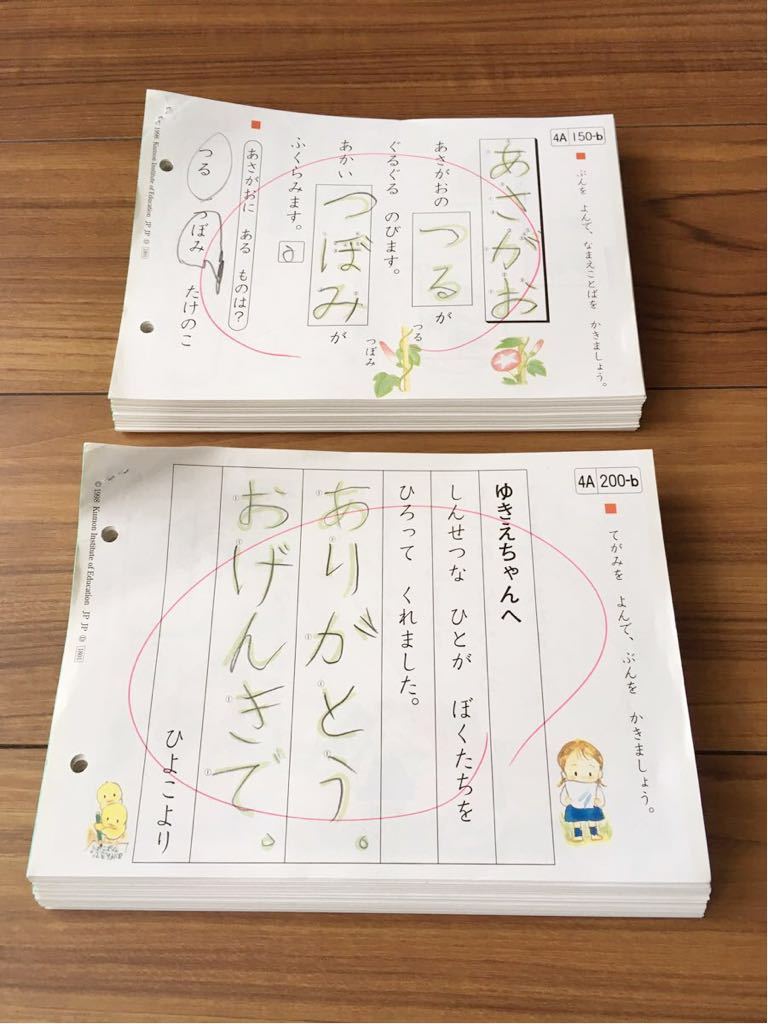 4A 150-b
ぶんを よんで、なまえことばを かきましょう。
あさがお
あさがおの つる が
ぐるぐる のびます。
あかい つぼみ が
ふくらみます。
つる
つぼみ
あさがおに ある ものは?
つる つぼみ たけのこ
© 1998 Kumon Institute of Education JP JP
4A 200-b
てがみを よんで、ぶんを かきましょう。
ゆきえちゃんへ
しんせつな ひとが ぼくたちを
ひろって くれました。
ありがとう。
おげんきで。
ひよこより
© 1998 Kumon Institute of Education JP JP